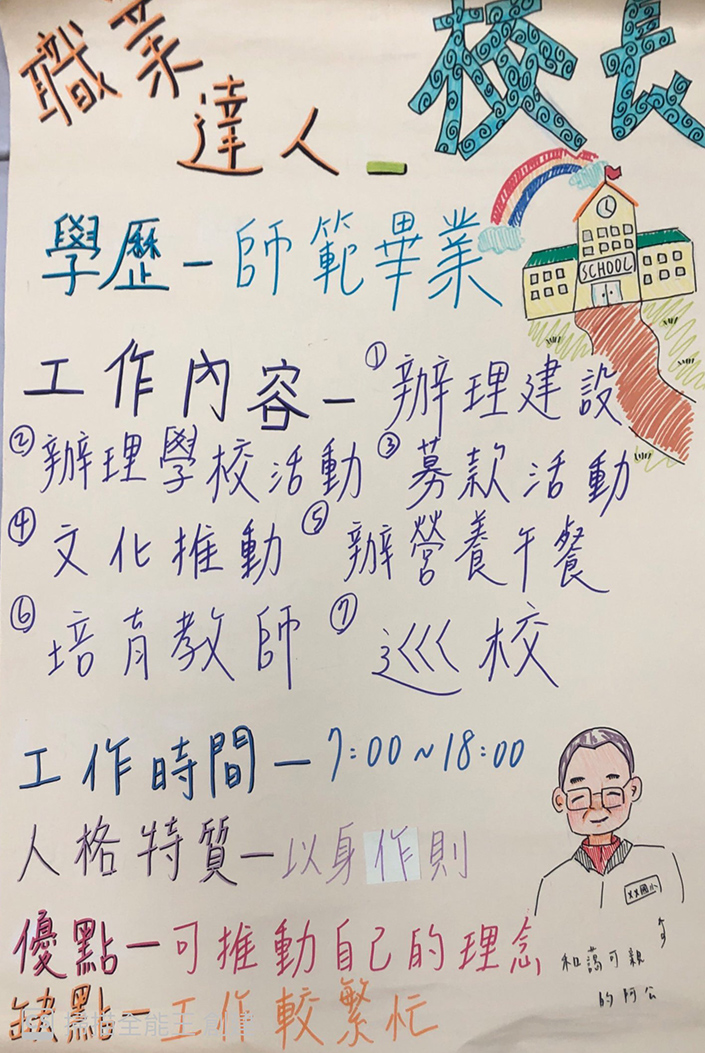 職業達人-校長
SCHOOL
學歷-師範畢業
工作內容-①辦理建設
②辦理學校活動③募款活動
④文化推動⑤辦營養午餐
⑥培育教師⑦巡校
工作時間-7:00~18:00
人格特質-以身作則
XX國小
優點-可推動自己的理念
和藹可親
的阿公
缺點-工作較繁忙
掃描全能王 創建